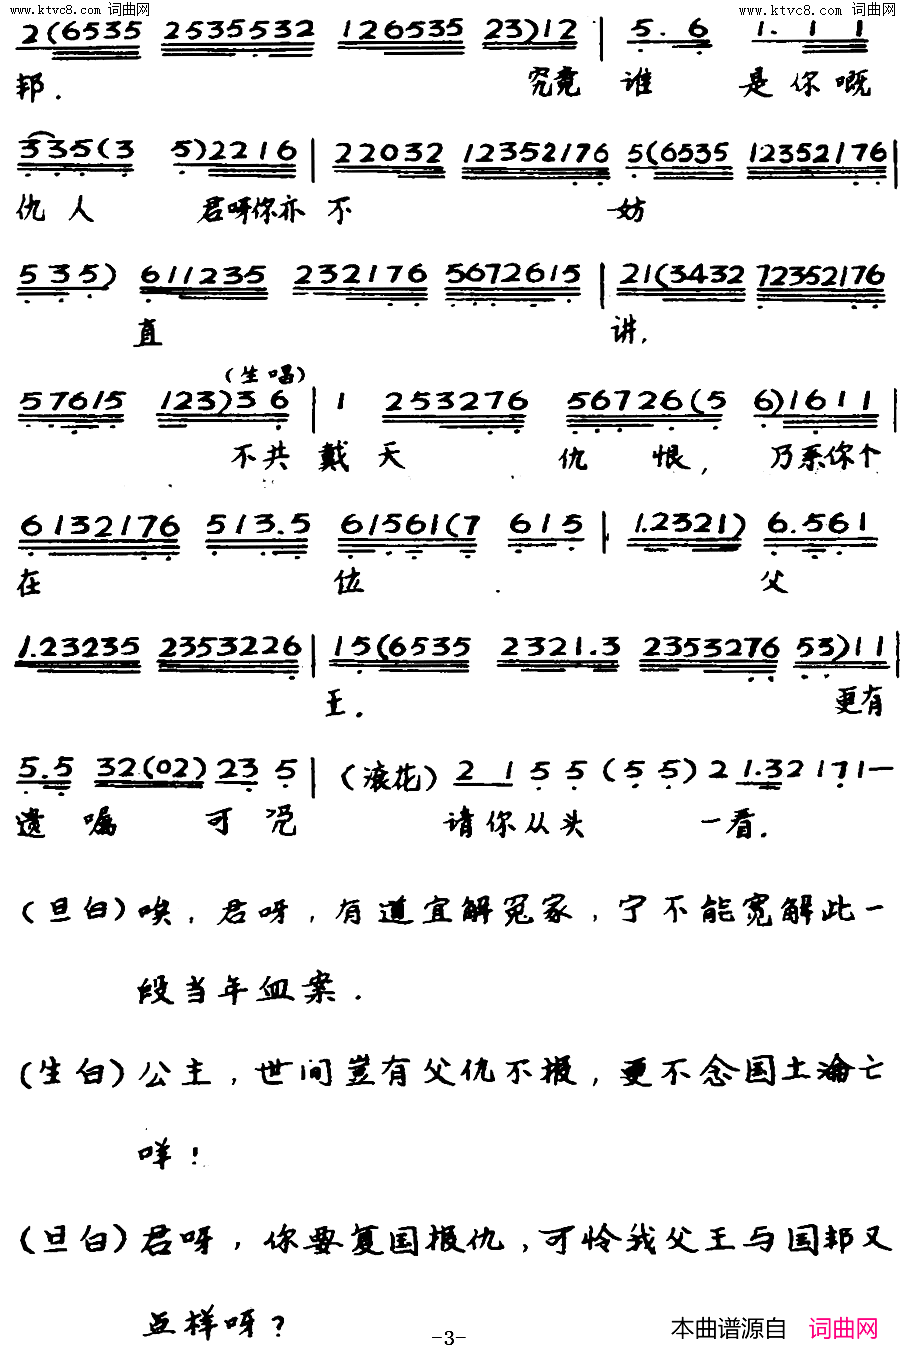 www.ktvc8.com 词曲网 www.ktvc8.com 词曲网
2(6535 2535532 126535 23)12 | 5.6 1.11
邦. 究竟 谁 是你嘅
335(3 5)2216 | 22032 12352176 5(6535 12352176 |
仇人 君呀你亦 不 妨
535) 611235 232176 5672615 | 21(3432 72352176
直 讲.
(生唱)
57615 123)36 | 1 253276 56726(5 6)1611 |
不共 戴天 仇恨, 乃系你个
6132176 513.5 61561(7 615 | 1.2321) 6.561
在 位. 父
1.23235 2353226 | 15(6535 2321.3 2353276 53)11 |
王. 更有
5.5 32(02) 23 5 | (滚花) 2 1 5 5 (5 5) 2 1.32 1 7 1—
遗嘱 可况 请你从头 一看.
(旦白)唉, 君呀, 有道宜解冤家, 宁不能宽解此一
段当年血案.
(生白)公主, 世间岂有父仇不报, 更不念国土沦亡
咩!
(旦白)君呀, 你要复国报仇, 可怜我父王与国邦又
点样呀?
-3-
本曲谱源自 词曲网